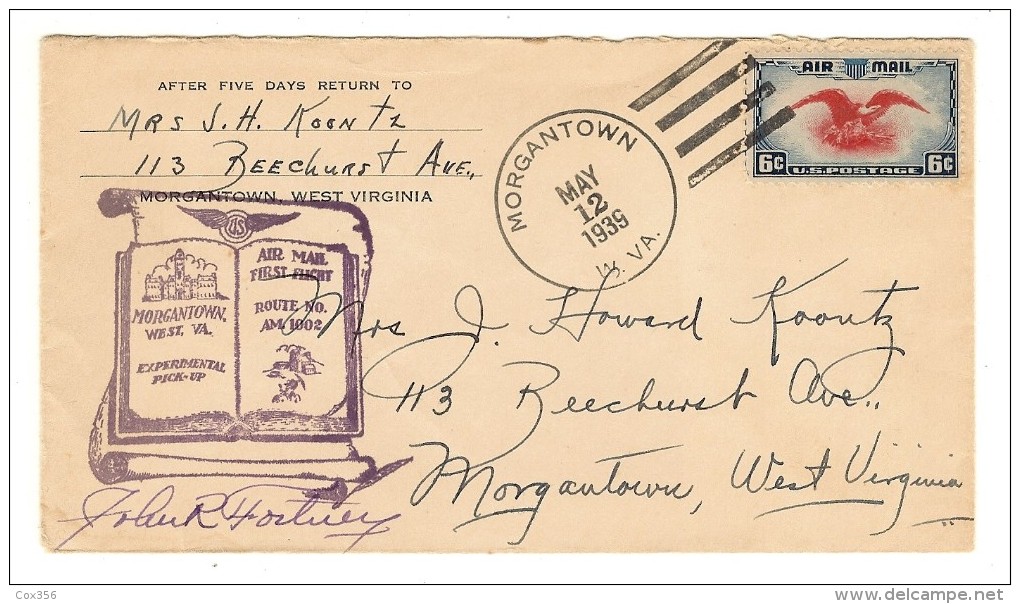 AFTER FIVE DAYS RETURN TO
MRS J. H. KOONTZ
113 BEECHURST AVE.,
MORGANTOWN, WEST VIRGINIA
AIR MAIL
6¢ 6¢
U.S. POSTAGE
MORGANTOWN
MAY
12
1939
W. VA.
US
MORGANTOWN,
WEST, VA.
EXPERIMENTAL
PICK-UP
AIR MAIL
FIRST FLIGHT
ROUTE NO.
AM. 1002
Mrs J. Howard Koontz
113 Beechurst Ave.,
Morgantown, West Virginia
John R Fortney
Cox356
www.delcampe.net